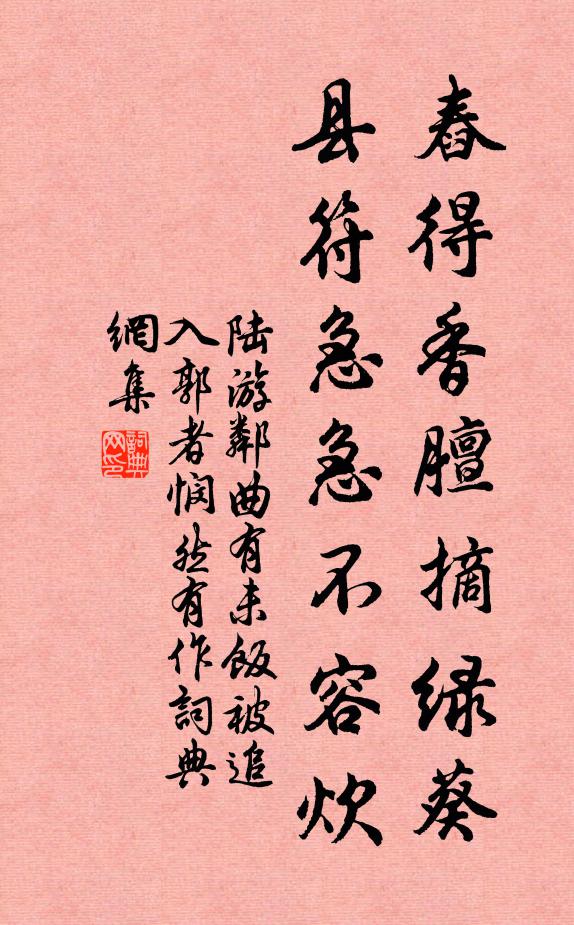 舂得香膻摘绿葵
县符急急不容炊
陆游鄰曲有未飯被追
入郭者悯然有作詞典
網集
詞典
网印